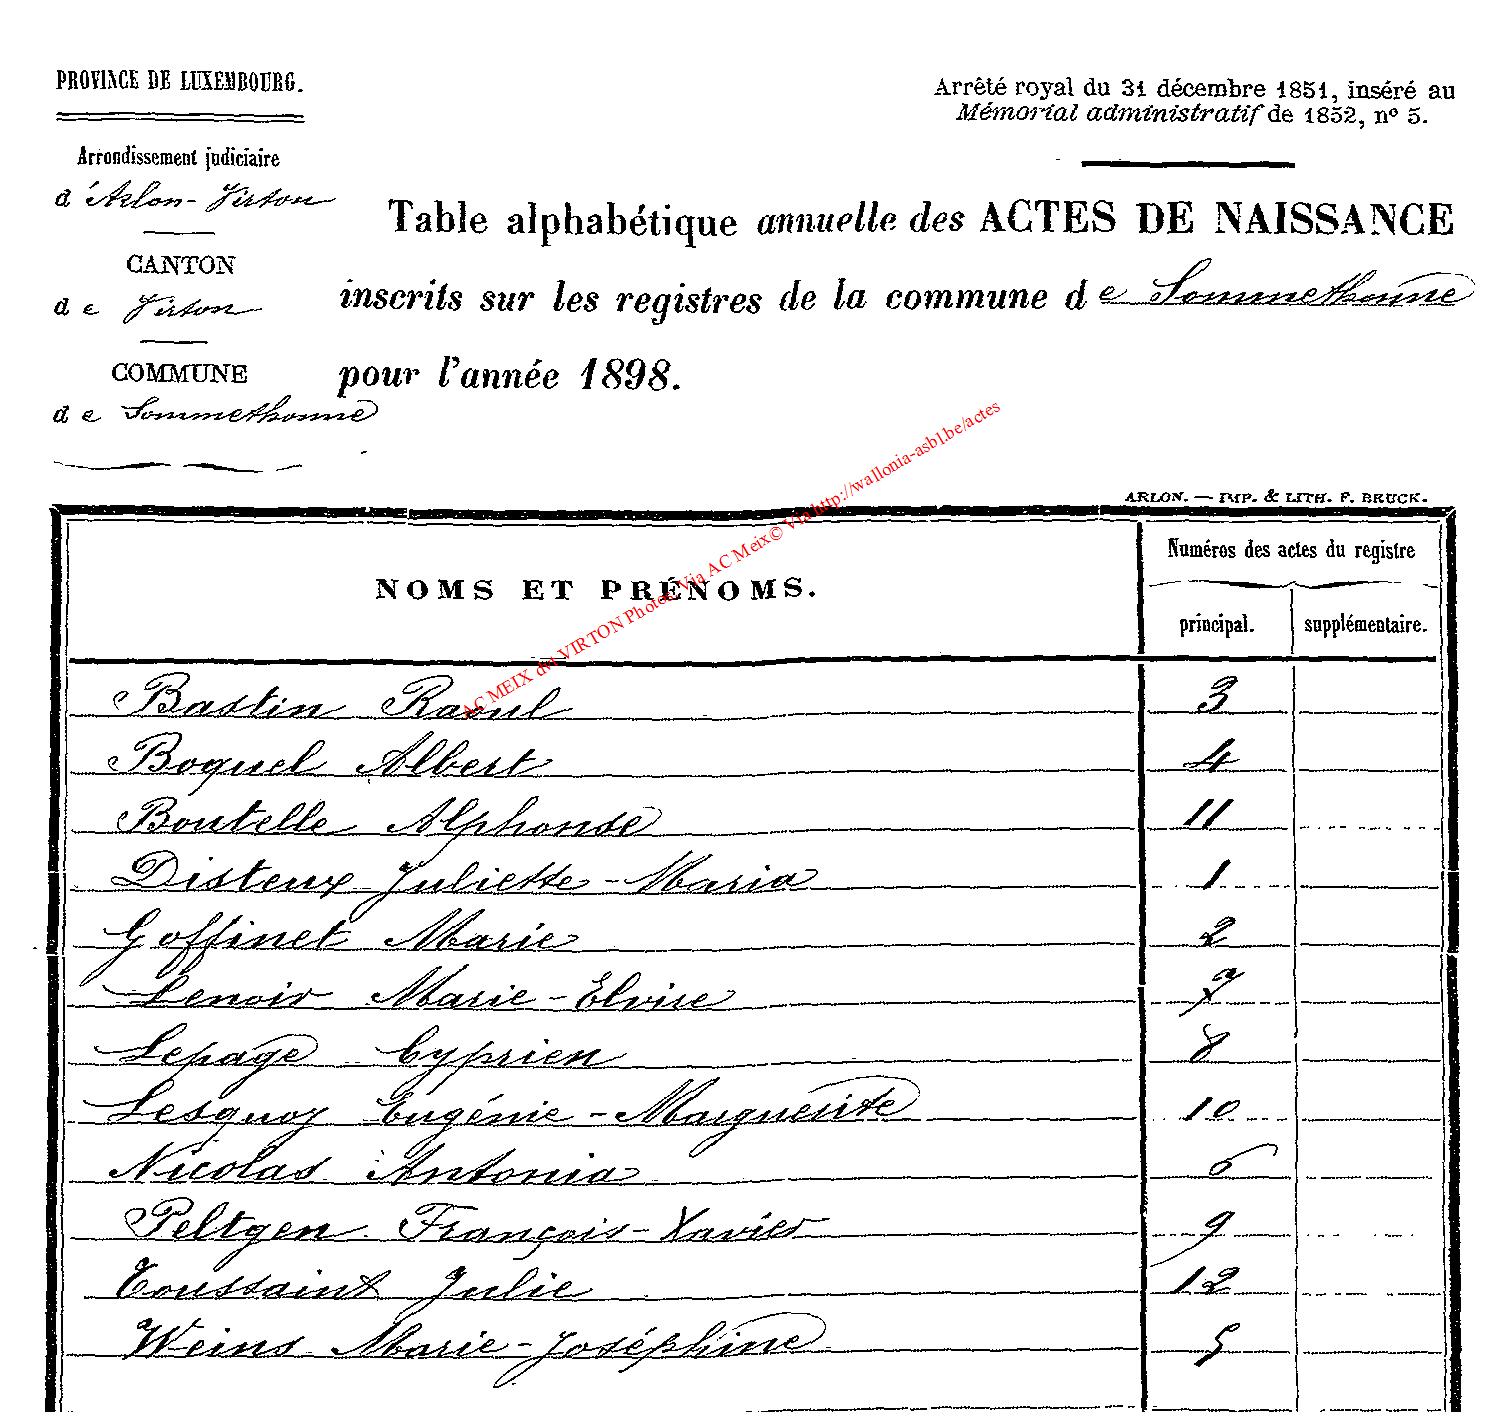 PROVINCE DE LUXEMBOURG.
Arrêté royal du 31 décembre 1851, inséré au
Mémorial administratif de 1852, nº 5.
Arrondissement judiciaire
d'Arlon-Virton
CANTON
de Virton
COMMUNE
de Sommethonne
Table alphabétique annuelle des ACTES DE NAISSANCE
inscrits sur les registres de la commune de Sommethonne
pour l'année 1898.
ARLON. — IMP. & LITH. F. BRUCK.
NOMS ET PRÉNOMS.
Numéros des actes du registre
principal. supplémentaire.
AC MEIX dvt VIRTON Photos Via AC Meix© Via http://wallonia-asbl.be/actes
Bastin Raoul 3
Boquel Albert 4
Boutelle Alphonse 11
Disteux Juliette-Maria 1
Goffinet Marie 2
Lenoir Marie-Elvire 7
Lepage Cyprien 8
Lesquoy Eugénie-Marguerite 10
Nicolas Antonia 6
Peltgen François-Xavier 9
Toussaint Julie 12
Weins Marie-Joséphine 5